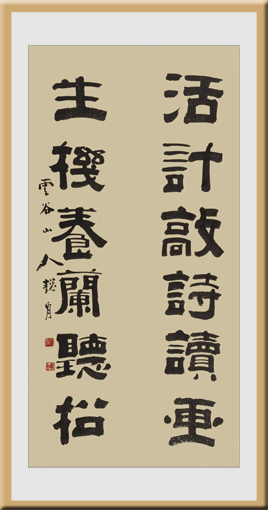 活計敲詩讀畫
生機養蘭聽松
雲谷山人